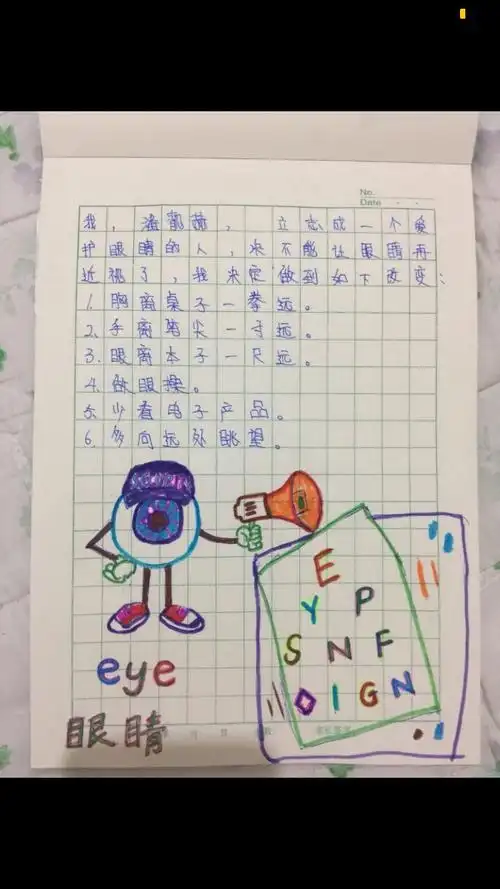 No.
Date
我，潘凯茹，立志成一个爱
护眼睛的人，决不能让眼睛再
近视了，我决定做到如下改变：
1.胸离桌子一拳远。
2.手离笔尖一寸远。
3.眼离本子一尺远。
4.做眼操。
5.少看电子产品。
6.多向远处眺望。
E
Y P
S N F
D I G N
eye
眼睛